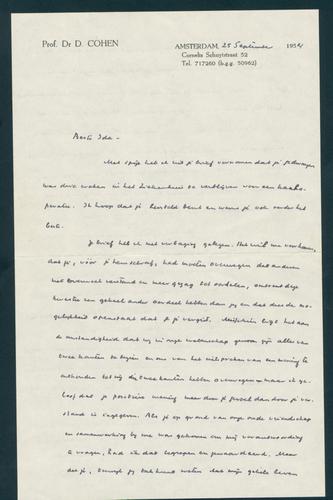 Prof. Dr D. COHEN
AMSTERDAM, 25 September 1954
Cornelis Schuytstraat 52
Tel. 717260 (b.g.g. 50962)
Beste Ida -
Met spijt heb ik uit je brief vernomen dat je gedwongen
was drie weken in het ziekenhuis te verblijven voor een
Ik hoop dat je hersteld bent en wens je ook verder het
beste.
Je brief heb ik met verbazing gelezen. Het wil me voorkomen,
dat je, vóór je hem schreef, had moeten overwegen dat anderen
met evenveel verstand en meer gezag tot oordelen, omtrent deze
kwestie een geheel ander oordeel hebben dan jij en dat dus de mo-
gelijkheid openstaat dat je je vergist. Misschien ligt het aan
de omstandigheid dat wij in onze wetenschap gewoon zijn alles van
twee kanten te bezien en ons van het uitspreken van een mening te
onthouden tot wij die twee kanten hebben overwogen maar ik ge-
loof dat je positieve mening meer door je gevoel dan door je ver-
stand is ingegeven. Als je op grond van onze oude vriendschap
en samenwerking bij me was gekomen om mij verantwoording
te vragen, had ik dat begrepen en gewaardeerd. Maar
dat mijn gehele leven